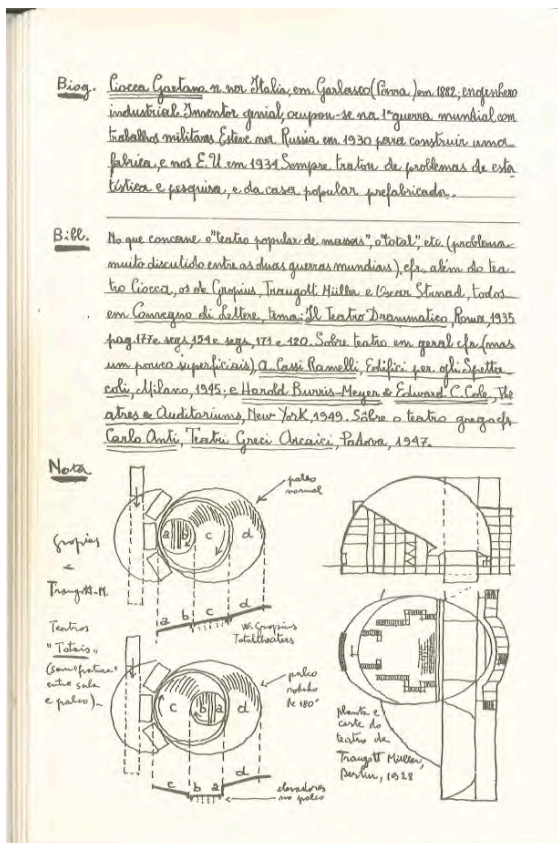 Biog. Ciocca Gaetano n. na Italia, em Garlasco (Pavia) em 1882; engenheiro
industrial. Inventor genial, ocupou-se na 1ª guerra mundial com
trabalhos militares. Esteve na Russia em 1930 para construir uma
fabrica, e nos E.U. em 1934. Sempre tratou de problemas de esta
tística e pesquisa, e da casa popular prefabricada.
Bibl. No que concerne o "teatro popular de massas", o "total", etc. (problema
muito discutido entre as duas guerras mundiais), cfr. além do tea
tro Ciocca, os de Gropius, Traugott Müller e Oscar Strnad, todos
em Convegno di Lettere, tema: Il Teatro Drammatico, Roma, 1935
pag. 177 e segs, 154 e segs, 171 e 120. Sobre teatro em geral cfr. (mas
um pouco superficiais), A. Cassi Ramelli, Edifici per gli Spetta
coli, Milano, 1945; e Harold Burris-Meyer & Edward C. Cole, The
atres & Auditoriums, New York, 1949. Sôbre o teatro grego cfr.
Carlo Anti, Teatri Greci Arcaici, Padova, 1947.
Nota
Gropius
e
Traugott-M.
Teatros
"Totais"
entre sala
e palco)
palco
normal
a b c d
a b c d
W. Gropius
Totaltheaters
palco
rodado
de 180°
c b a d
c b a d
elevadores
no palco
planta e
corte do
teatro de
Traugott Müller,
Berlin, 1928